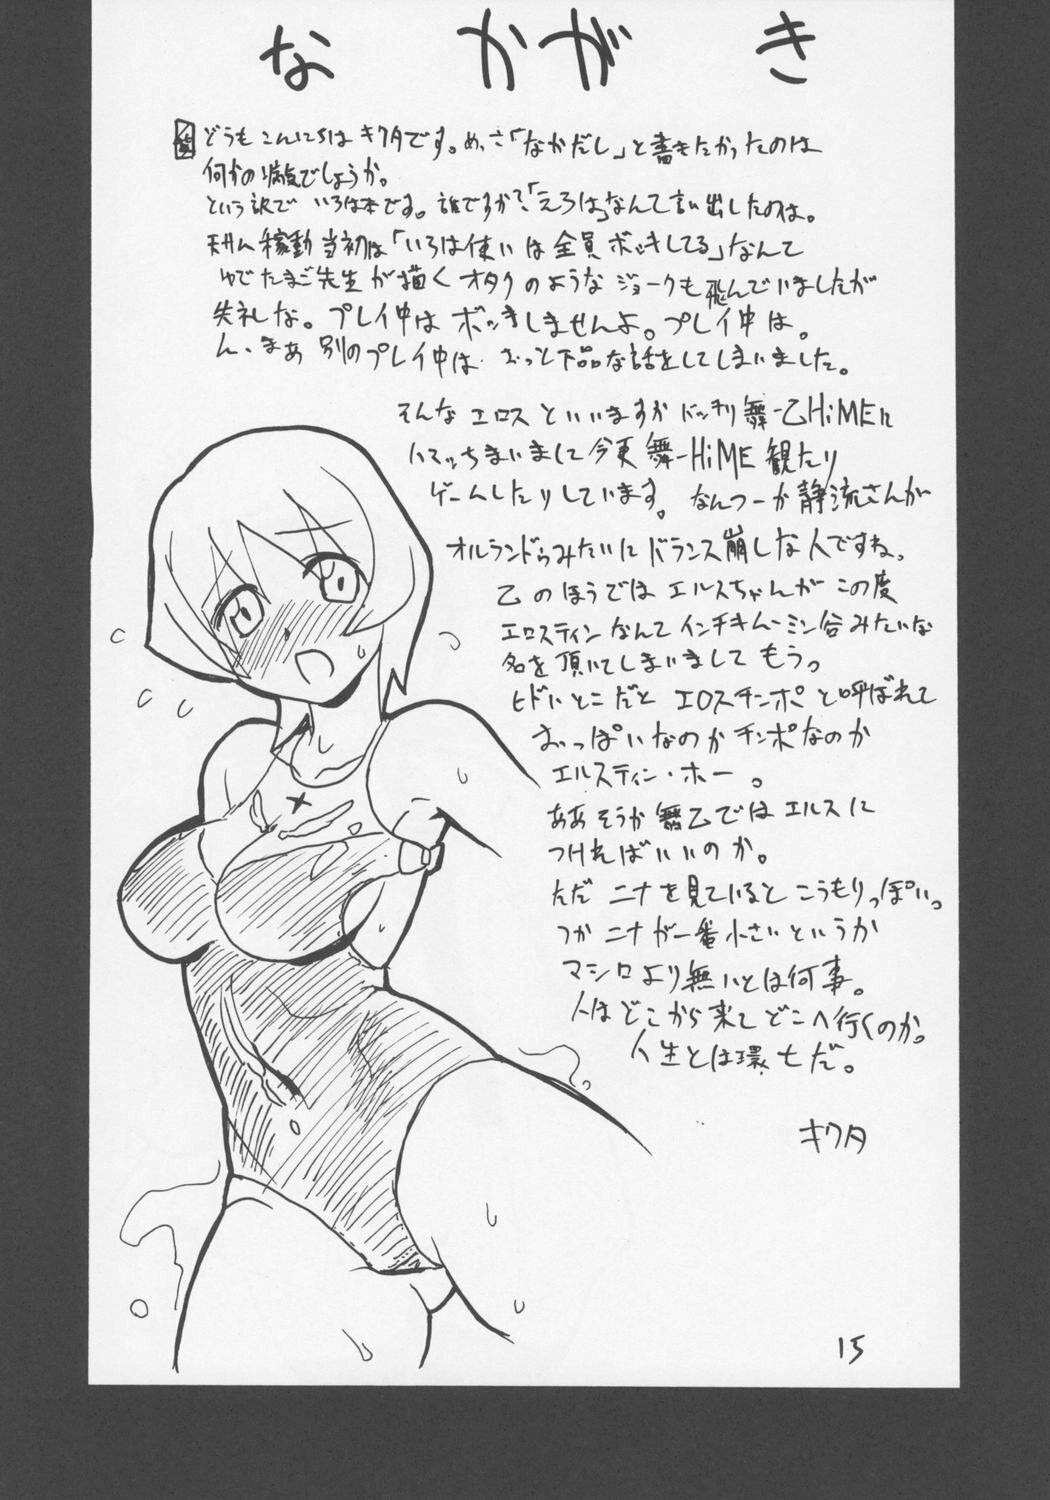 なかがき
どうもこんにちは キクタです。めっさ「なかだし」と書きたかったのは
何かの病気でしょうか。
という訳で いろは本です。誰ですか?「えろは」なんて言い出したのは。
天サム稼動当初は「いろは使いは全員ボッキしてる」なんて
ゆでたまご先生が描くオタクのようなジョークも飛んでいましたが
失礼な。プレイ中はボッキしませんよ。プレイ中は。
ん、まあ 別のプレイ中は おっと下品な話をしてしまいました。
そんなエロスといいますか バッチリ舞-乙HiMEに
ハマッちまいまして今更 舞-HiME 観たり
ゲームしたりしています。なんつーか静流さんが
オルランドゥみたいにバランス崩しな人ですね。
乙のほうではエルスちゃんがこの度
エロスティンなんてインチキムーミン谷みたいな
名を頂いてしまいまして もうっ
ヒドいとこだと エロスチンポと呼ばれて
おっぱいなのかチンポなのか
エルスティン・ホー。
ああそうか舞乙ではエルスに
つければいいのか。
ただ ニナを見ていると こうもりっぽい。
つかニナが一番小さいというか
マシロより無いとは何事。
人はどこから来てどこへ行くのか。
人生とは環七だ。
キクタ
15